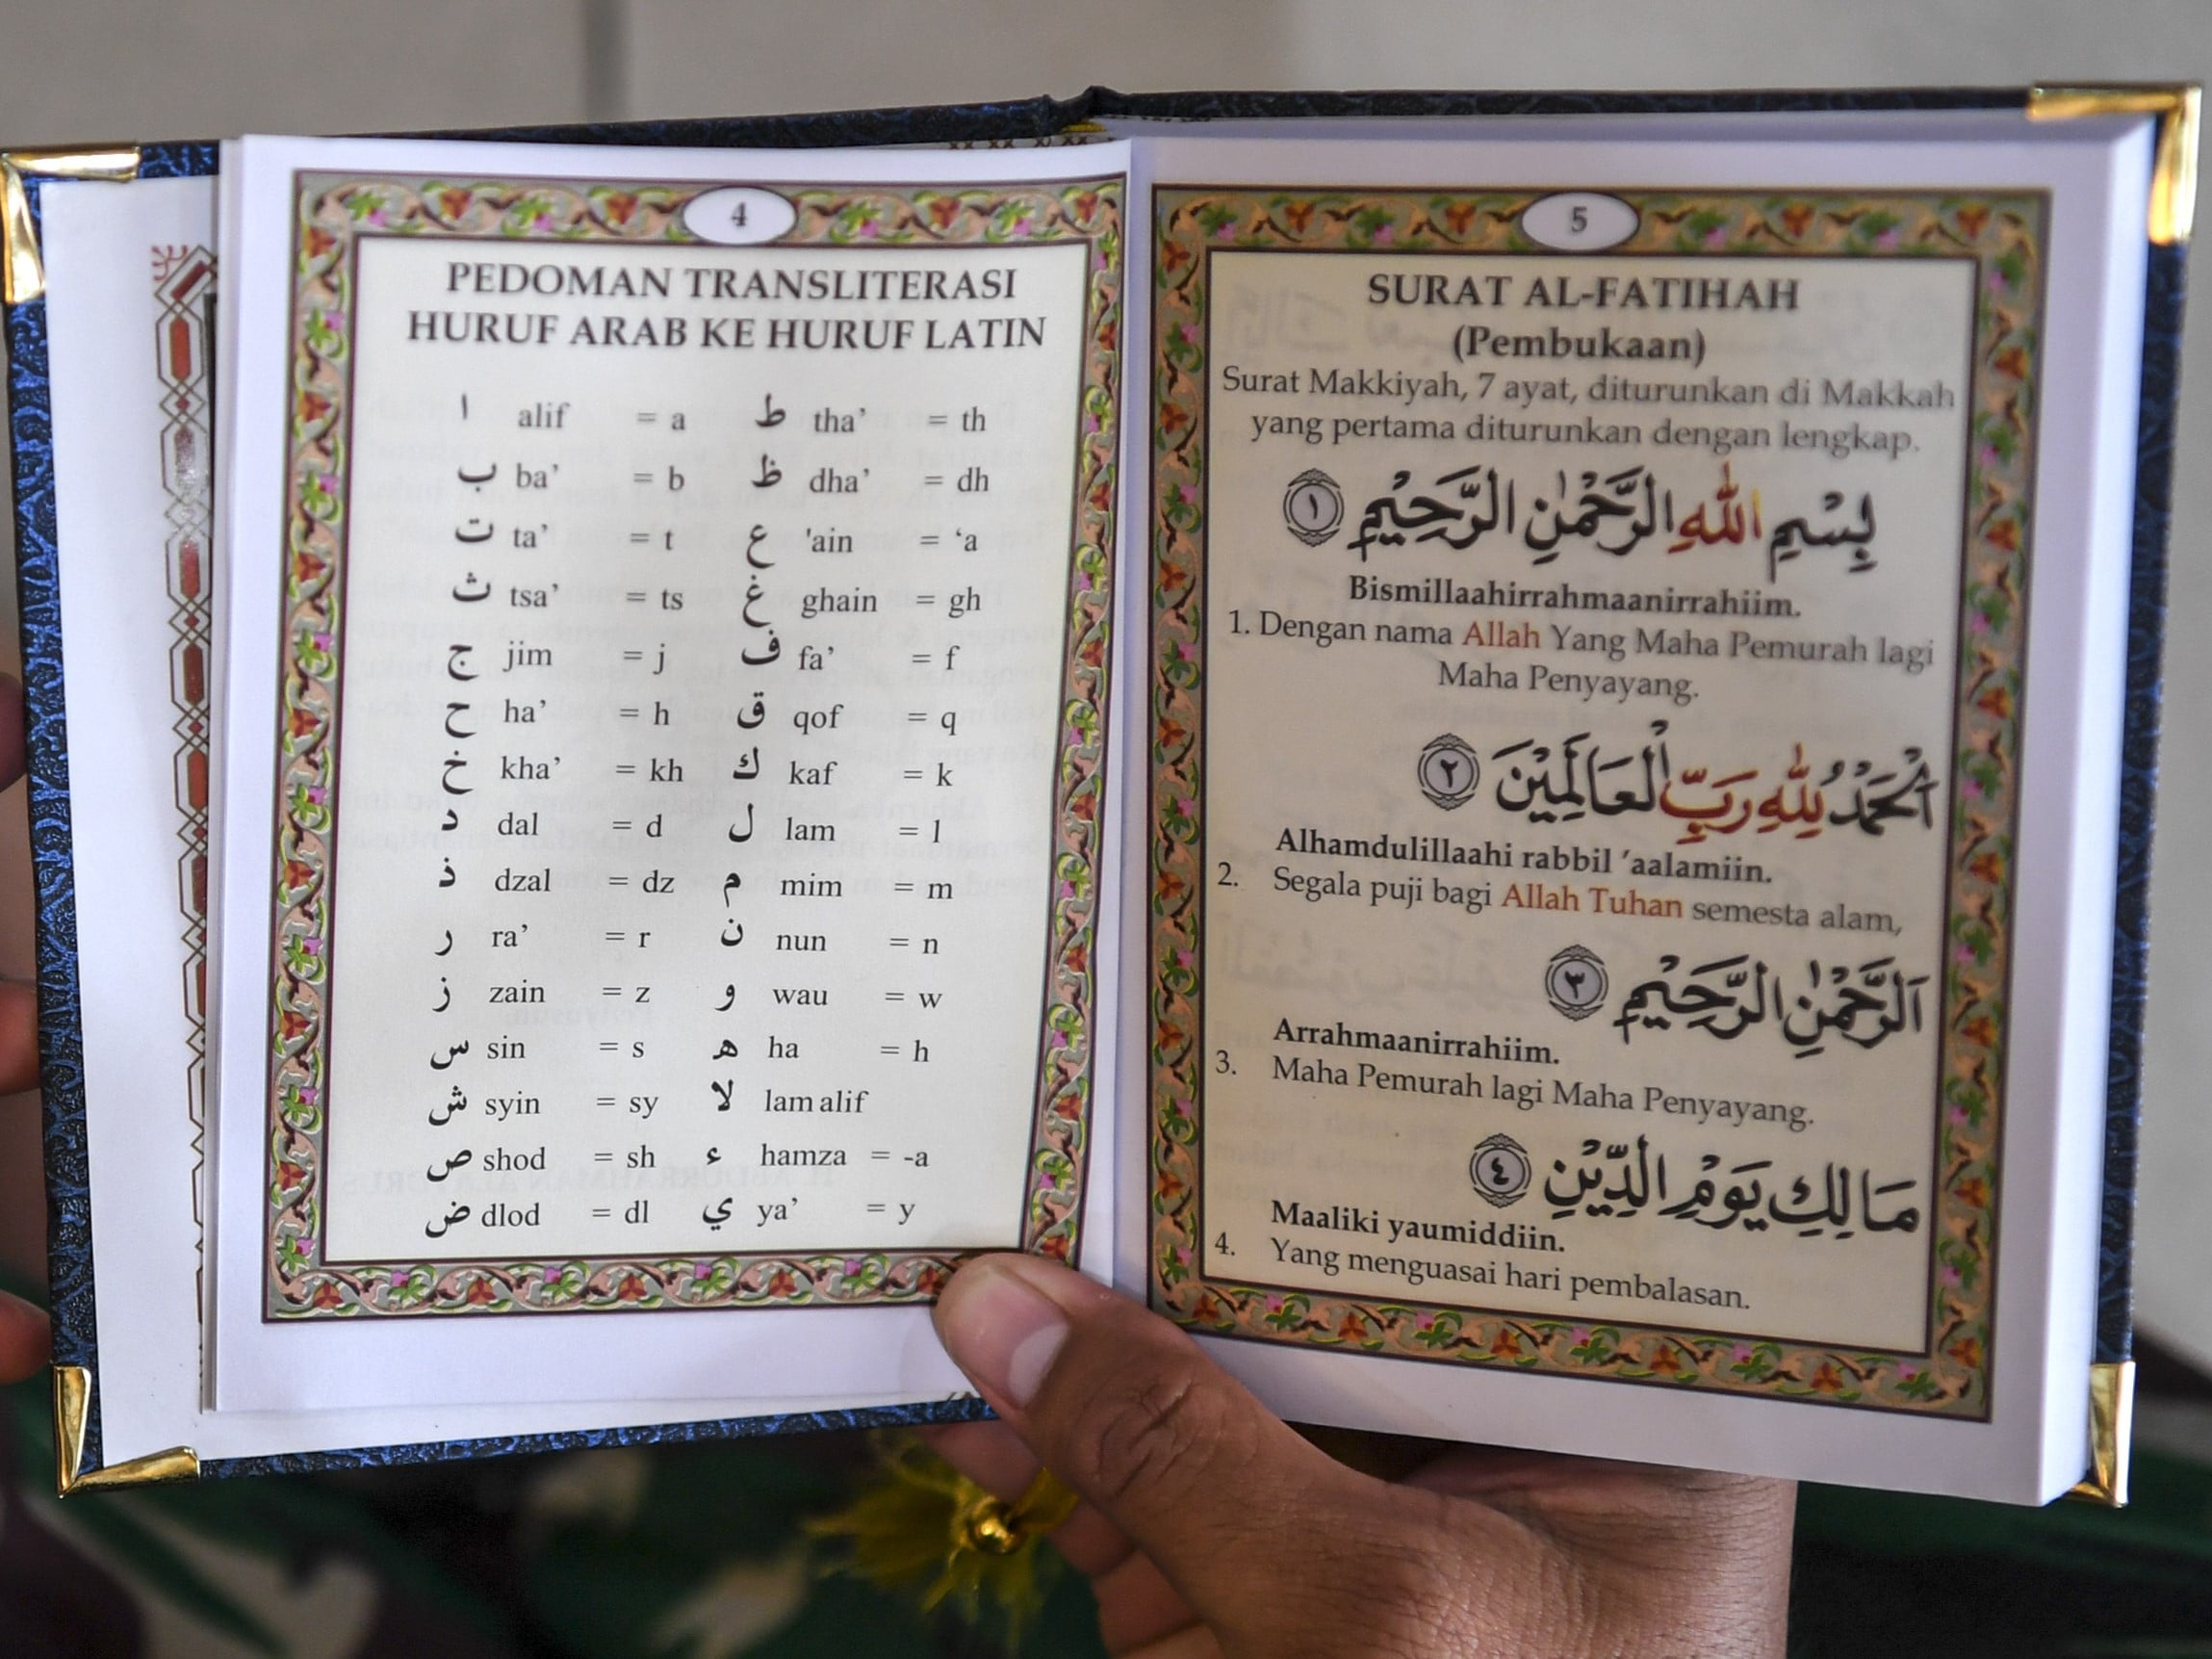 4
PEDOMAN TRANSLITERASI
HURUF ARAB KE HURUF LATIN
ا alif = a ط tha’ = th
ب ba’ = b ظ dha’ = dh
ت ta’ = t ع 'ain = ‘a
ث tsa’ = ts غ ghain = gh
ج jim = j ف fa’ = f
ح ha’ = h ق qof = q
خ kha’ = kh ك kaf = k
د dal = d ل lam = l
ذ dzal = dz م mim = m
ر ra’ = r ن nun = n
ز zain = z و wau = w
س sin = s ه ha = h
ش syin = sy لا lam alif
ص shod = sh ء hamza = -a
ض dlod = dl ي ya’ = y
5
SURAT AL-FATIHAH
(Pembukaan)
Surat Makkiyah, 7 ayat, diturunkan di Makkah
yang pertama diturunkan dengan lengkap.
بِسْمِ اللهِ الرَّحْمٰنِ الرَّحِيْمِ ١
Bismillaahirrahmaanirrahiim.
1. Dengan nama Allah Yang Maha Pemurah lagi
Maha Penyayang.
اَلْحَمْدُ لِلّٰهِ رَبِّ الْعَالَمِيْنَ ٢
Alhamdulillaahi rabbil ’aalamiin.
2. Segala puji bagi Allah Tuhan semesta alam,
اَلرَّحْمٰنِ الرَّحِيْمِ ٣
Arrahmaanirrahiim.
3. Maha Pemurah lagi Maha Penyayang.
مَالِكِ يَوْمِ الدِّيْنِ ٤
Maaliki yaumiddiin.
4. Yang menguasai hari pembalasan.